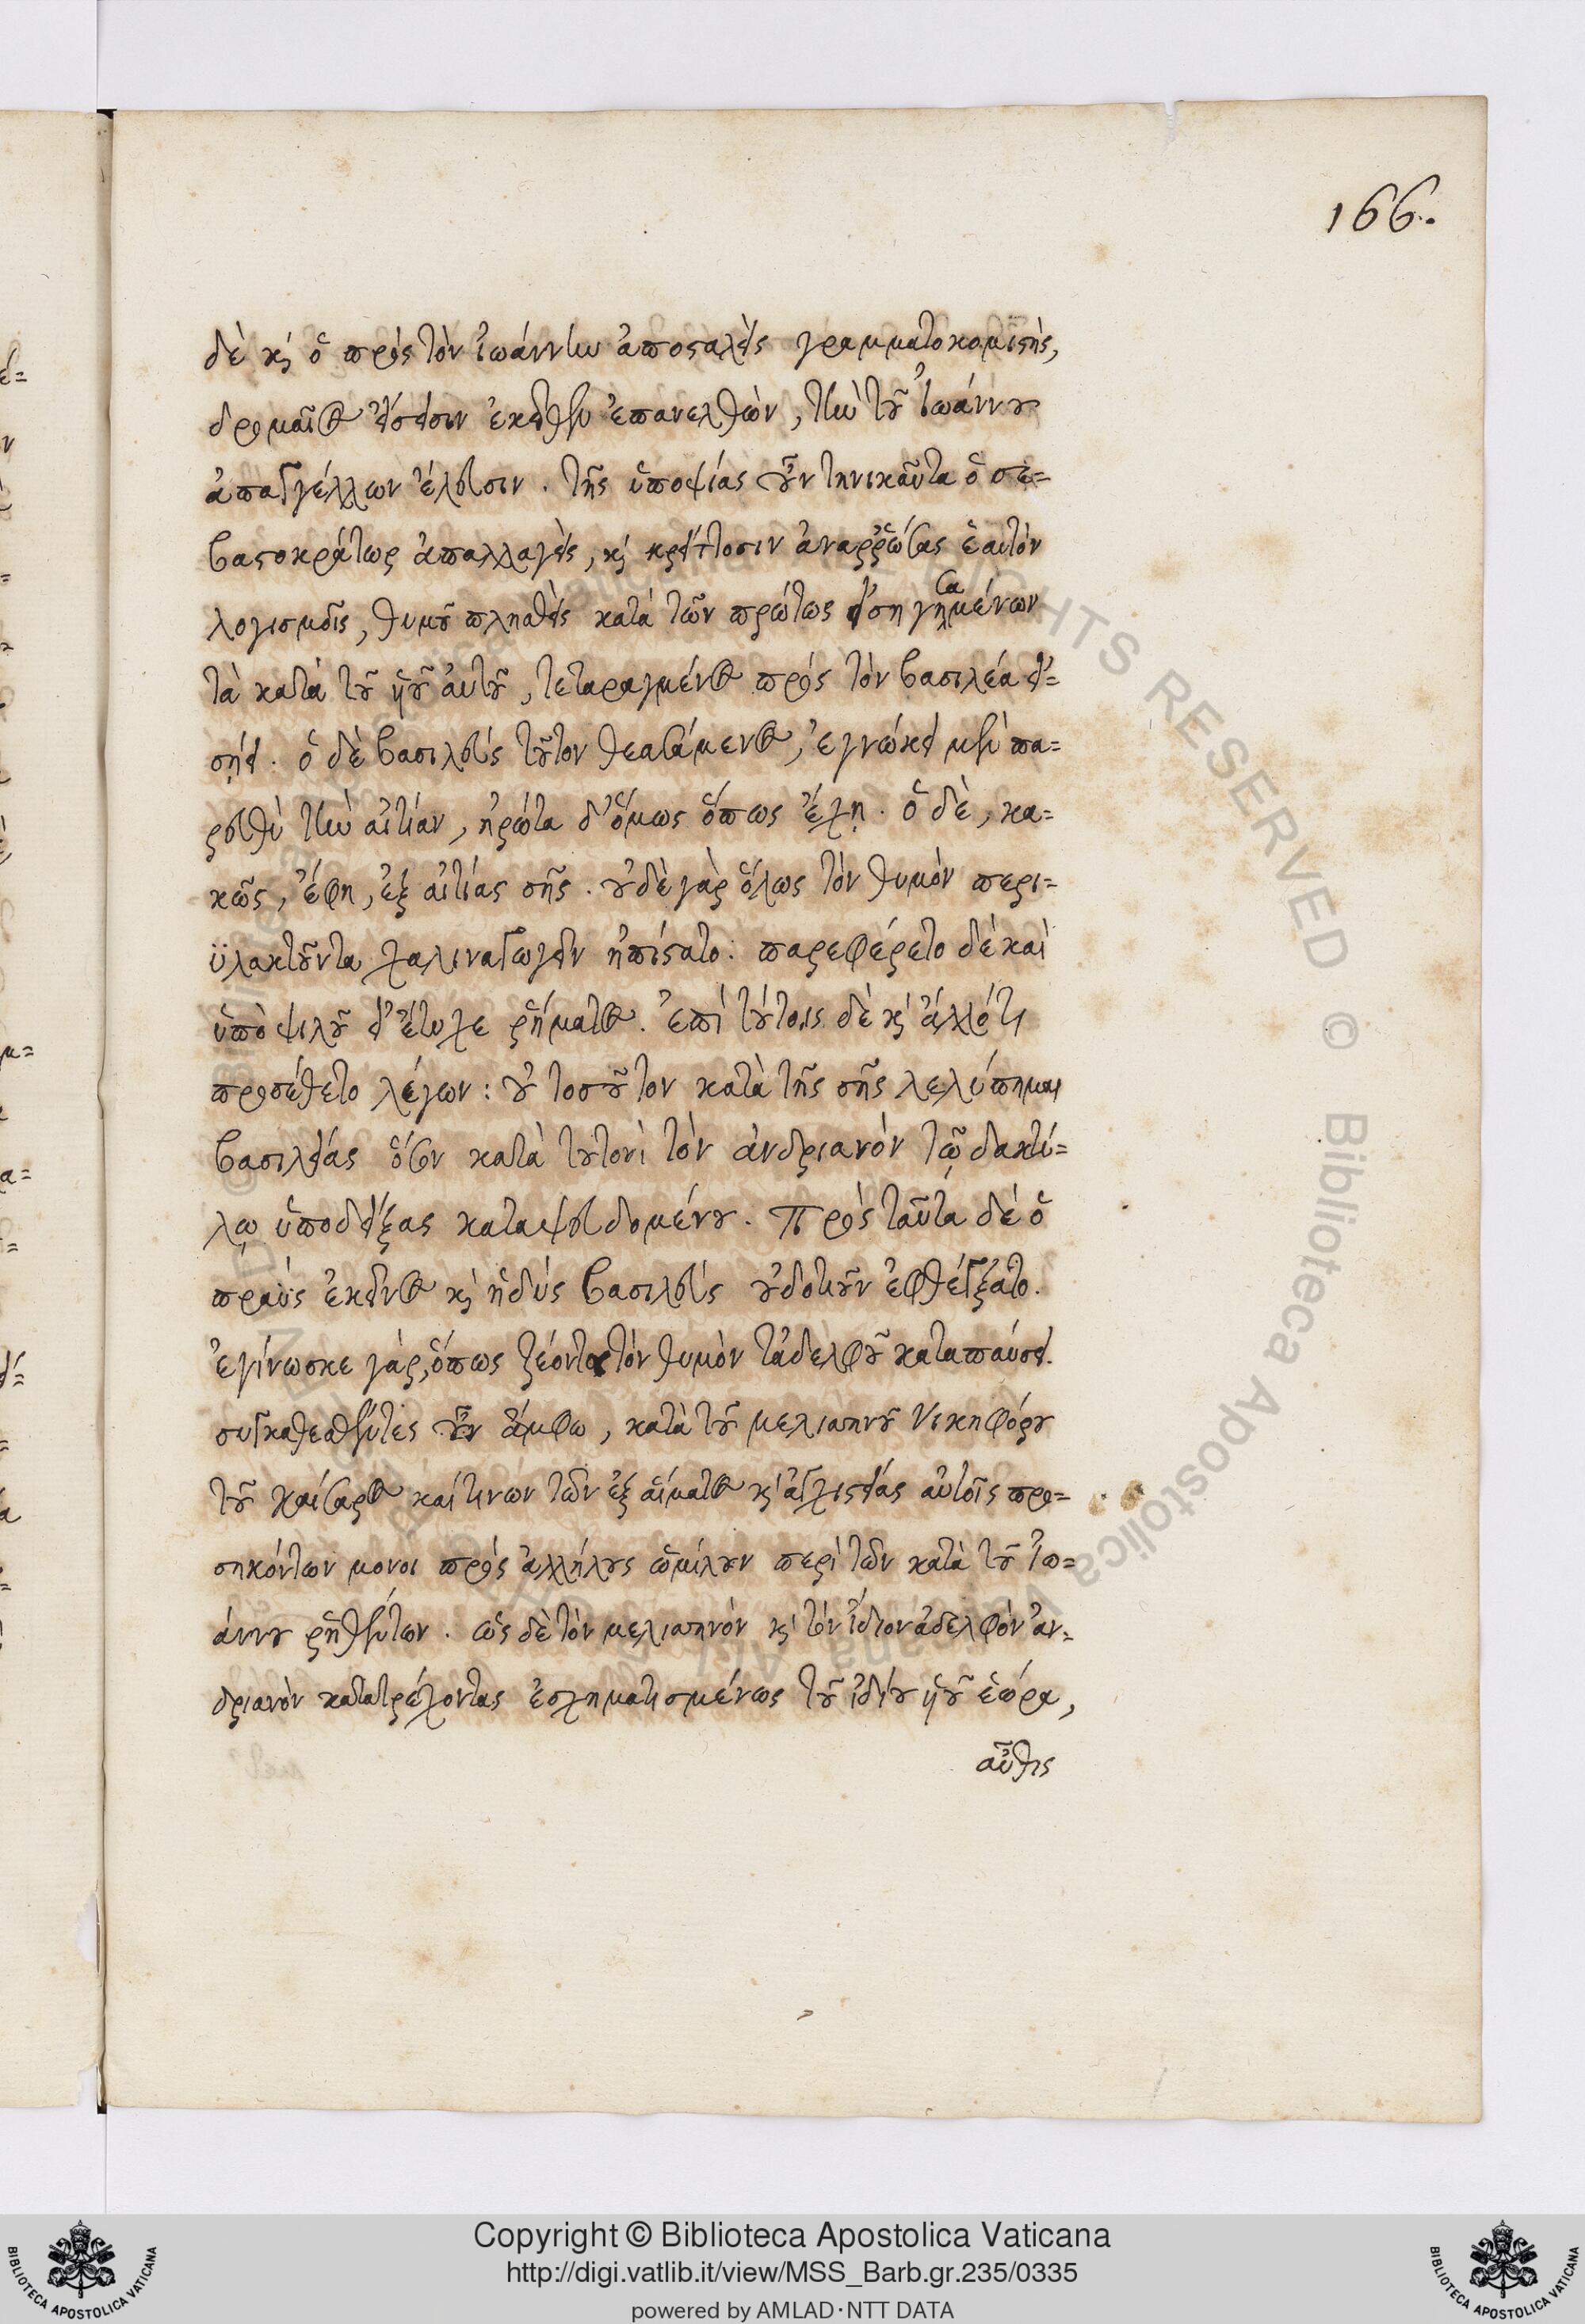 166.
δὲ καὶ ὁ πρὸς τὸν ἰωάννην ἀποσταλεὶς γραμματοκομιστὴς,
δρομαῖος εἴσεισιν ἐκεῖθεν ἐπανελθὼν, τὴν τοῦ Ἰωάννου
ἀπαγγέλλων ἔλευσιν. τῆς ὑποψίας οὖν τηνικαῦτα ὁ σε=
βαστοκράτωρ ἀπαλλαγεὶς, καὶ κρείττοσιν ἀναρρώσας ἑαυτὸν
λογισμοῖς, θυμοῦ πλησθεὶς κατὰ τῶν πρώτως εἰσηγησαμένων
τὰ κατὰ τοῦ υἱοῦ αὐτοῦ, τεταραγμένος πρὸς τὸν βασιλέα εἰ=
σῄει. ὁ δὲ βασιλεὺς τοῦτον θεασάμενος, ἐγνώκει μὲν πα=
ρευθὺ τὴν αἰτίαν, ἠρώτα δ' ὅμως ὅπως ἔχῃ. ὁ δὲ, κα=
κῶς, ἔφη, ἐξ αἰτίας σῆς. οὐδὲ γὰρ ὅλως τὸν θυμὸν περι=
ϋλακτοῦντα χαλιναγωγεῖν ἠπίστατο. παρεφέρετο δὲ καὶ
ὑπὸ ψιλοῦ εἰ ἔτυχε ῥήματος. ἐπὶ τούτοις δὲ καὶ ἄλλό τι
προσέθετο λέγων: οὐ τοσοῦτον κατὰ τῆς σῆς λελύπημαι
βασιλείας ὅσον κατὰ τουτονὶ τὸν ἀνδριανὸν τῷ δακτύ=
λῳ ὑποδείξας καταψευδομένου. Πρὸς ταῦτα δὲ ὁ
πραὺς ἐκεῖνος καὶ ἡδὺς βασιλεὺς οὐδοτιοῦν ἐφθέγξατο.
ἐγίνωσκε γὰρ, ὅπως ζέοντος τὸν θυμὸν τἀδελφοῦ καταπαύσει.
συγκαθεσθέντες οὖν ἄμφω, κατὰ τοῦ μελισηνοῦ Νικηφόρου
τοῦ καίσαρος καί τινων τῶν ἐξ αἵματος καὶ ἀγχιστείας αὐτοῖς προ=
σηκόντων μονοι πρὸς ἀλλήλους ὡμίλουν περὶ τῶν κατὰ τοῦ Ἰω=
άννου ῥηθέντων. ὡς δὲ τὸν μελισηνὸν καὶ τὸν ἴδιον ἀδελφὸν ἀν=
δριανὸν κατατρέχοντας ἐσχηματισμένως τοῦ ἰδίου υἱοῦ ἑώρα,
αὖθις
Copyright © Biblioteca Apostolica Vaticana
http://digi.vatlib.it/view/MSS_Barb.gr.235/0335
powered by AMLAD·NTT DATA